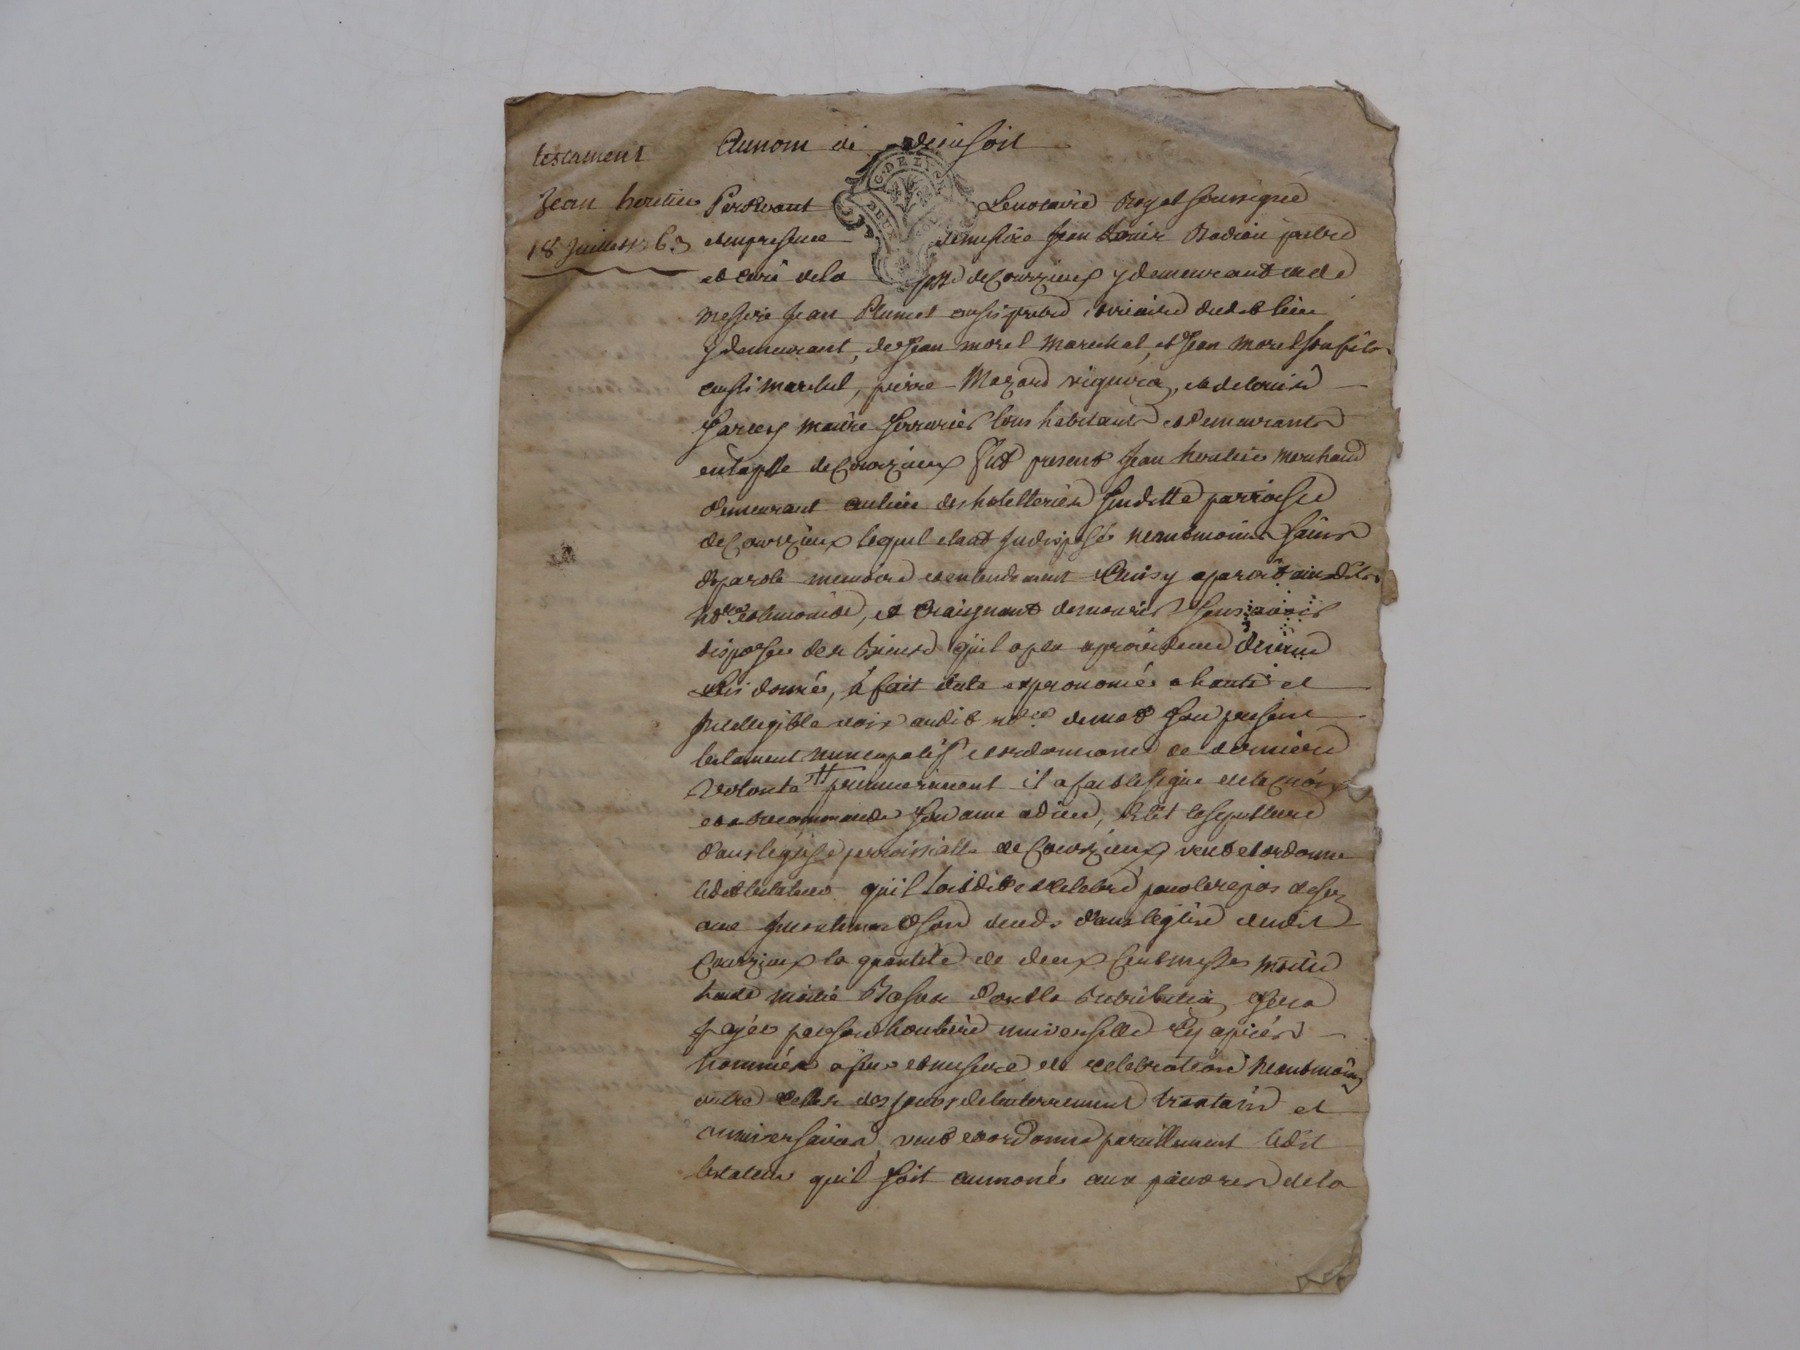 testament
Jean
18 Juillet 1763
Au nom de dieu soit
G. DE LYON
DEUX
Pardevant Le notaire Royal soussigné
et en presence de messire Jean Louis prebtre
et curé de la psse de Courzieux y demeurant et de
messire Jean aussi prebtre vicaire dudit lieu
y demeurant, de Jean morel marechal, et Jean morel son fils
aussi marechal, pierre vigneron, et de Louis
maitre serrurier tous habitants et demeurants
en la psse de Courzieux fut present Jean marchand
demeurant au lieu des hotelleries susditte parroisse
de Courzieux lequel etant Indisposé neantmoins sain
de parole memoire et entendement ainsy aparoit audit
nore et temoins, et Craignant de mourir sans avoir
disposer des biens qu'il a plu a providence divine
luis donner, à fait dicté et prononcé a haute et
Intelligible voix audit nore de mot son present
testament nuncupatif et ordonnance de derniere
volonté premierement il a fait le signe de la Croix
et a recommandé son ame a dieu, Elit sa sepulture
dans leglise parroissialle de Courzieux veut et ordonne
ledit testateur qu'il soit dit et celebré pour le repos de son
ame Incontinent son deceds dans leglise dudit
Courzieux la quantité de deux Cent messes moitié
haute moitié Basse dont la retribution sera
payée par son heritiere universelle Cy aprés
nommée a fur et mesure de celebration neantmoins
outre celles des jours de lenterrement trantain et
anniversaire, veut et ordonne pareillement ledit
testateur qu'il soit aumoné aux pauvres de la